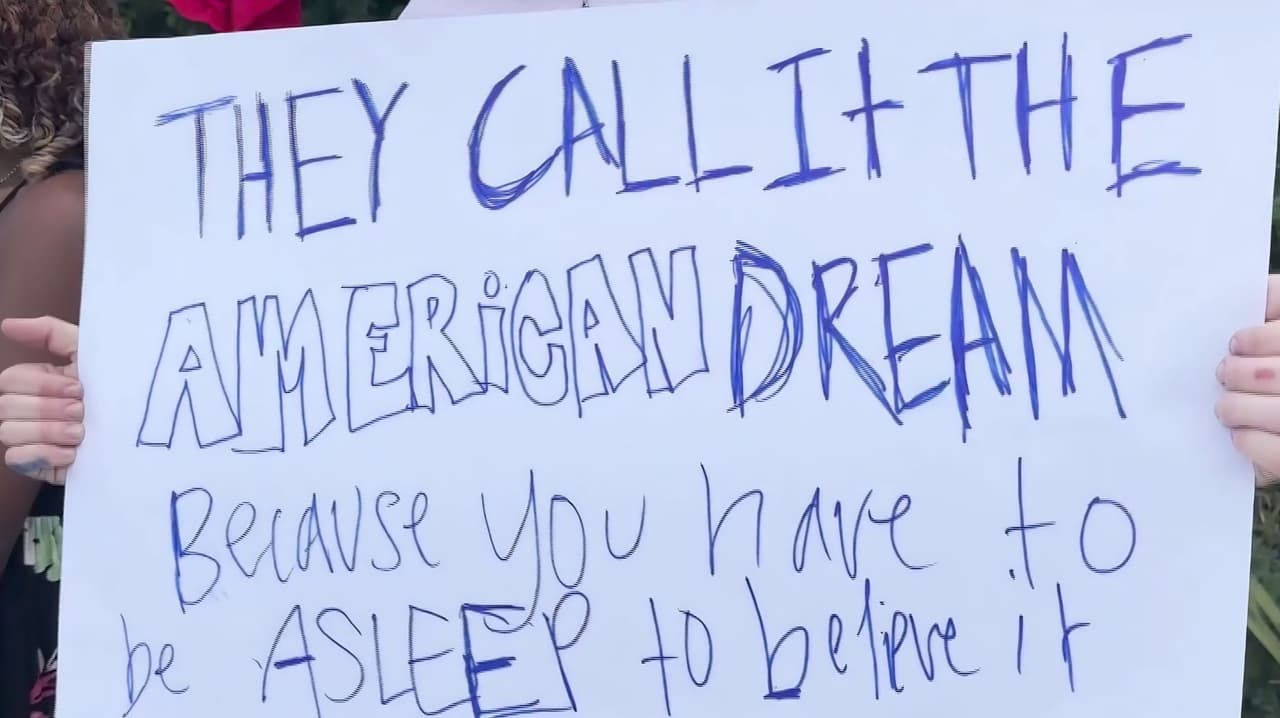 THEY CALL It THE
AMERiCAN DREAM
Because you have to
be ASLEEP to believe it